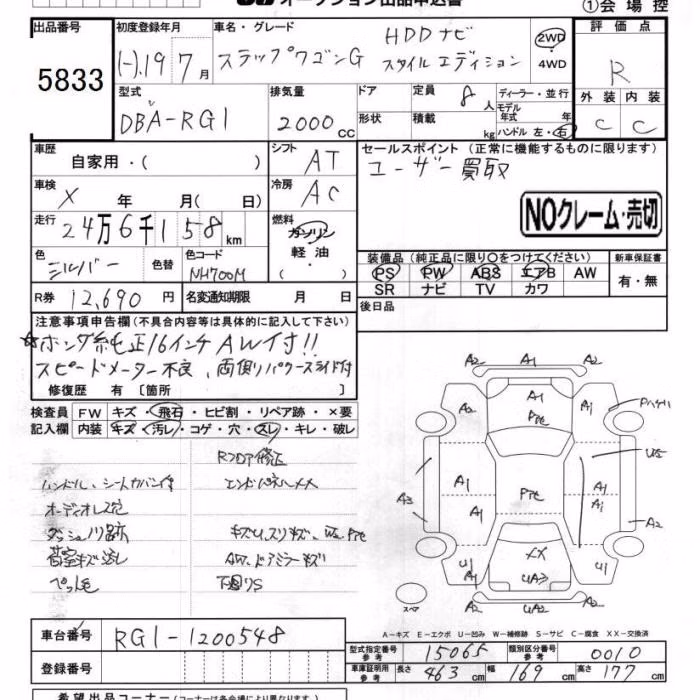 オークション出品申込書
①会場控
出品番号 初度登録年月 車名・グレード 評価点
5833 (-).19 7月 ステップワゴンG HDDナビ スタイルエディション 2WD・4WD R
型式 排気量 ドア 定員 8人 ディーラー・並行 外装 内装
DBA-RG1 2000cc 形状 積載 kg モデル年式 年 ハンドル 左・右 C C
車歴 自家用・( ) シフト AT セールスポイント (正常に機能するものに限ります)
ユーザー買取
車検 X 年 月( 日) 冷房 AC
NOクレーム・売切
走行 24万6千158km 燃料 ガソリン・軽油・( )
色 シルバー 色替 色コード NH700M
装備品 (純正品に限り○をつけてください) 新車保証書
PS PW ABS エアB AW 有・無
SR ナビ TV カワ
R券 12,690円 名変通知期限 月 日 後日品
注意事項申告欄 (不具合内容等は具体的に記入して下さい)
☆ホンダ純正16インチAW付!!
スピードメーター不良、両側パワースライド付
修復歴 有 [箇所 ]
検査員 FW キズ・飛石・ヒビ割・リペア跡・×要
記入欄 内装 キズ・汚レ・コゲ・穴・スレ・キレ・破レ
Rフロア修正
ハンドル、シートカバー付 エンドパネルXX
オーディオレス
ペット毛 下廻りS
A2 A1 A2
A2 A1 A1
A1 A1
A3 A1 A2
XX
U1 UA2 U1
スペア
A―キズ E―エクボ U―凹み W―補修跡 S―サビ C―腐食 XX―交換済
車台番号 RG1-1200548
型式指定番号 参考 15065 類別区分番号 参考 0010
登録番号 車庫証明用 参考 長さ 463cm 幅 169cm 高さ 177cm
希望出品コーナー (コーナーは各会場により異なります)